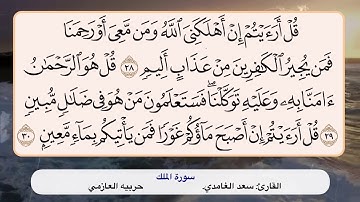 قُلْ أَرَءَيْتُمْ إِنْ أَهْلَكَنِىَ ٱللَّهُ وَمَن مَّعِىَ أَوْ رَحِمَنَا
فَمَن يُجِيرُ ٱلْكَٰفِرِينَ مِنْ عَذَابٍ أَلِيمٍ ٢٨ قُلْ هُوَ ٱلرَّحْمَٰنُ
ءَامَنَّا بِهِۦ وَعَلَيْهِ تَوَكَّلْنَا ۖ فَسَتَعْلَمُونَ مَنْ هُوَ فِى ضَلَٰلٍ مُّبِينٍ
٢٩ قُلْ أَرَءَيْتُمْ إِنْ أَصْبَحَ مَآؤُكُمْ غَوْرًا فَمَن يَأْتِيكُم بِمَآءٍ مَّعِينٍۭ ٣٠
سورة الملك
القارئ: سعد الغامدي. حربيه العازمي